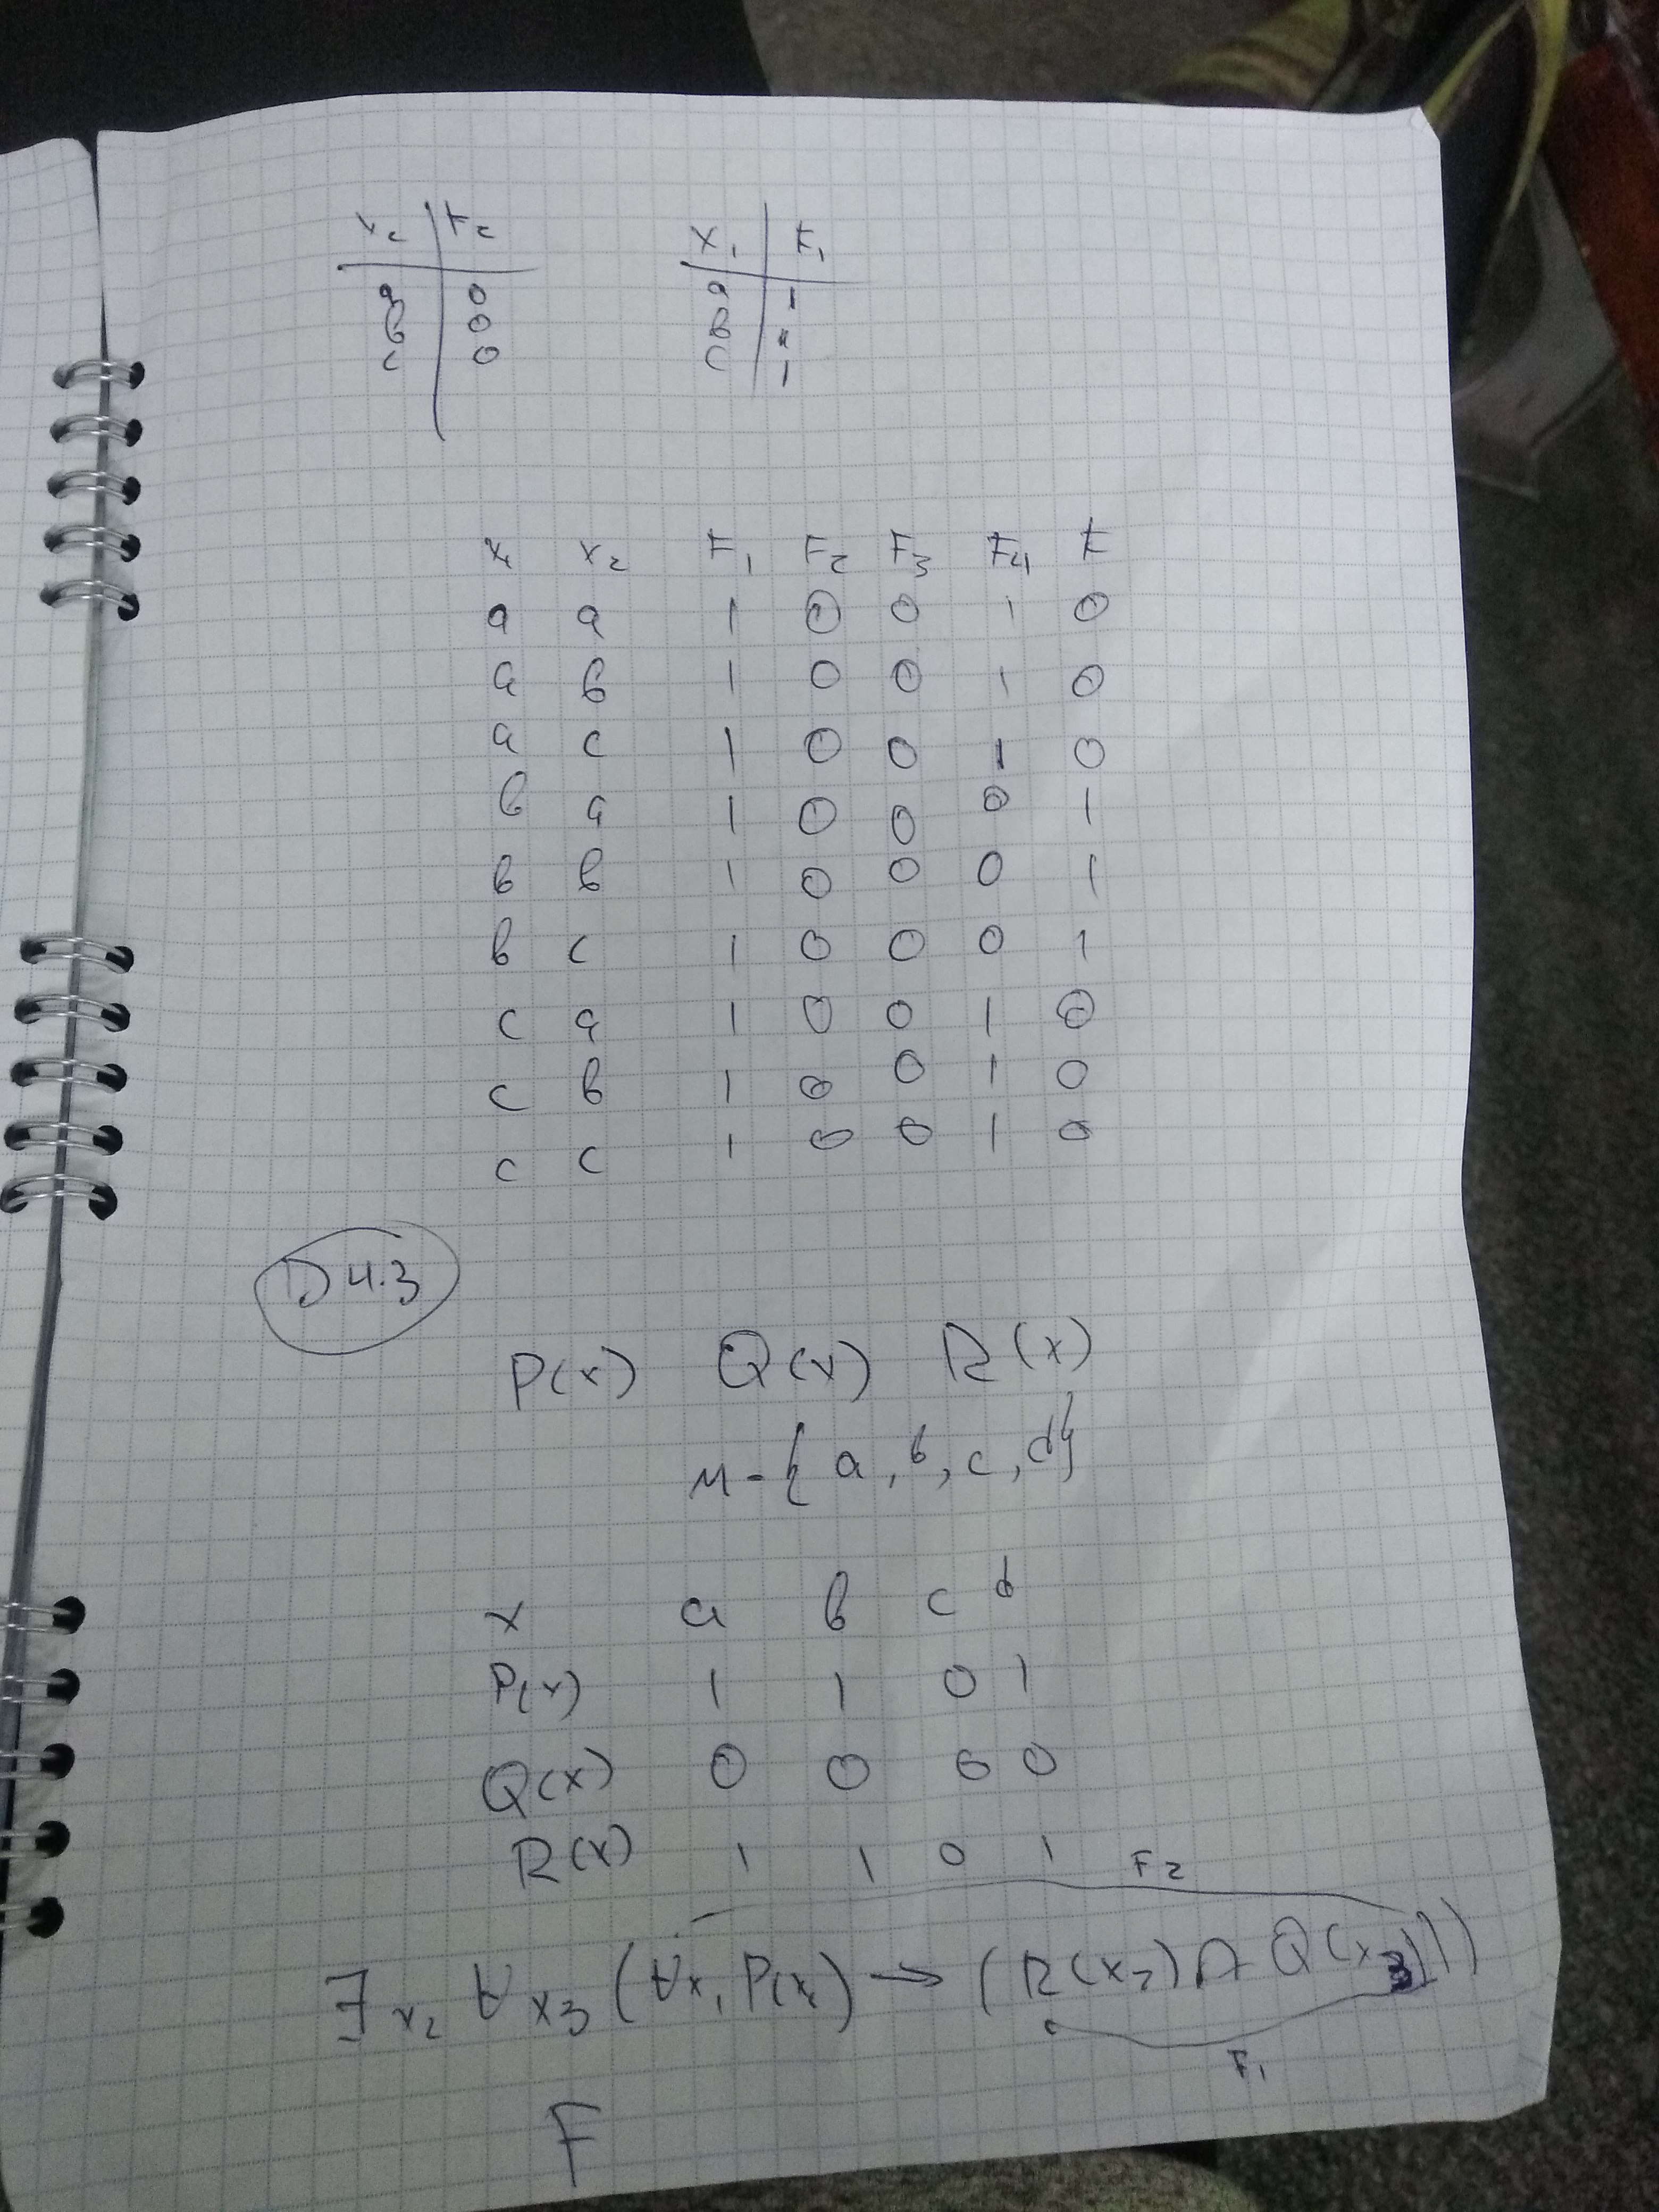 x₂ F₂
a 0
b 0
c 0
x₁ F₁
a 1
b 1
c 1
x₁ x₂ F₁ F₂ F₃ F₄ F
a a 1 0 0 1 0
a b 1 0 0 1 0
a c 1 0 0 1 0
b a 1 0 0 0 1
b b 1 0 0 0 1
b c 1 0 0 0 1
c a 1 0 0 1 0
c b 1 0 0 1 0
c c 1 0 0 1 0
D 4.3
P(x) Q(x) R(x)
M = { a, b, c, d }
x a b c d
P(x) 1 1 0 1
Q(x) 0 0 0 0
R(x) 1 1 0 1
F₂
∃x₂ ∀x₃ (∀x₁ P(x₁) → (R(x₂) ∧ Q(x₃)))
F₁
F